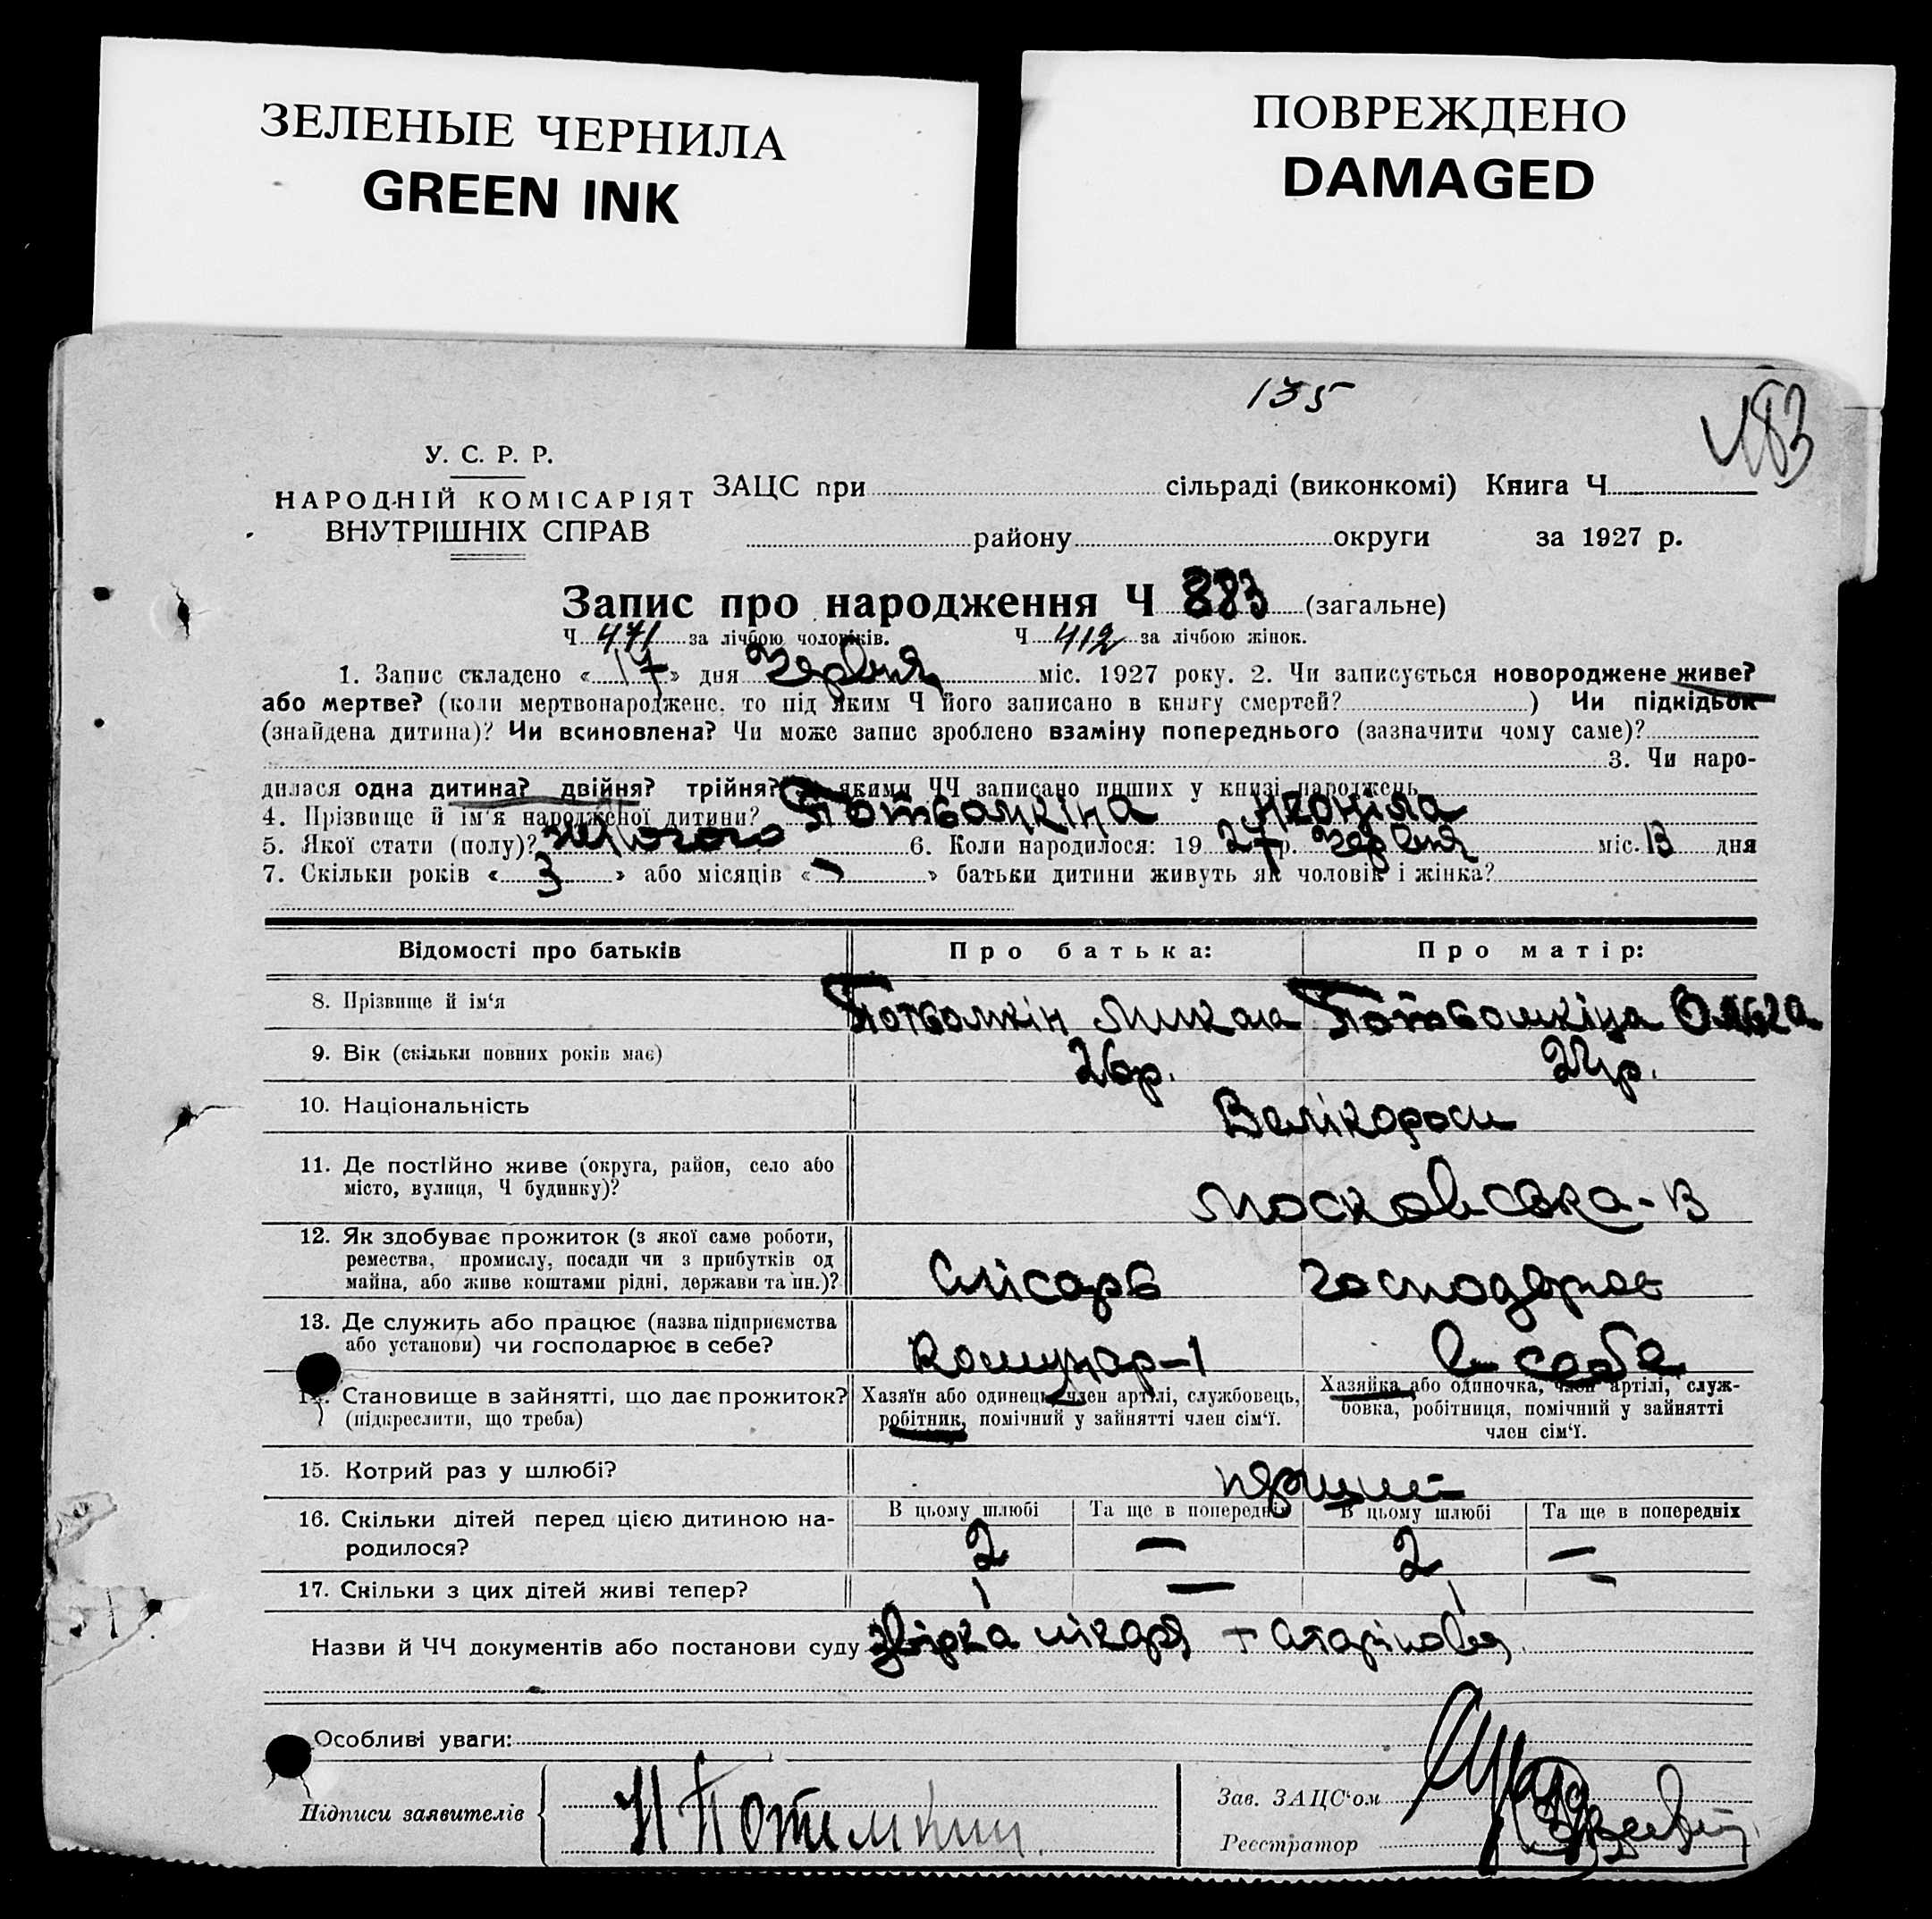 ЗЕЛЕНЫЕ ЧЕРНИЛА
GREEN INK
ПОВРЕЖДЕНО
DAMAGED
135
483
У. С. Р. Р.
НАРОДНІЙ КОМІСАРІЯТ
ВНУТРІШНІХ СПРАВ
ЗАЦС при сільраді (виконкомі) Книга Ч.
району округи за 1927 р.
Запис про народження Ч 883 (загальне)
Ч 471 за лічбою чоловіків. Ч 412 за лічбою жінок.
1. Запис складено « 17 » дня Червня міс. 1927 року. 2. Чи записується новороджене живе?
або мертве? (коли мертвонароджене, то під яким Ч його записано в книгу смертей? ) Чи підкідьок
(знайдена дитина)? Чи всиновлена? Чи може запис зроблено взаміну попереднього (зазначити чому саме)?
3. Чи наро-
дилася одна дитина? двійня? трійня? якими ЧЧ записано инших у книзі народжень
4. Прізвище й ім'я народженої дитини? Потьомкіна
5. Якої стати (полу)? жіночого 6. Коли народилося: 19 27 р. червня міс. 13 дня
7. Скільки років « 3 » або місяців « — » батьки дитини живуть як чоловік і жінка?
Відомості про батьків Про батька: Про матір:
8. Прізвище й ім'я Потьомкін Микола Потьомкіна Ольга
9. Вік (скільки повних років має) 26р. 24р.
10. Національність Велікороси
11. Де постійно живе (округа, район, село або
місто, вулиця, Ч будинку)? Московська-13
12. Як здобуває прожиток (з якої саме роботи,
ремества, промислу, посади чи з прибутків од
майна, або живе коштами рідні, держави та ин.)? Слісарь господарює
13. Де служить або працює (назва підприємства
або установи) чи господарює в себе? Комунар-1 в себе
14. Становище в зайнятті, що дає прожиток?
(підкреслити, що треба)
Хазяїн або одинець, член артілі, службовець,
робітник, помічний у зайнятті член сім'ї.
Хазяйка або одиночка, член артілі, служ-
бовка, робітниця, помічний у зайнятті
член сім'ї.
15. Котрий раз у шлюбі?
В цьому шлюбі Та ще в попередніх В цьому шлюбі Та ще в попередніх
16. Скільки дітей перед цією дитиною на-
родилося? 2 — 2 —
17. Скільки з цих дітей живі тепер? 1 — 1 —
Назви й ЧЧ документів або постанови суду лікаря
Особливі уваги:
Підписи заявителів Н Потемкин
Зав. ЗАЦС'ом
Реєстратор